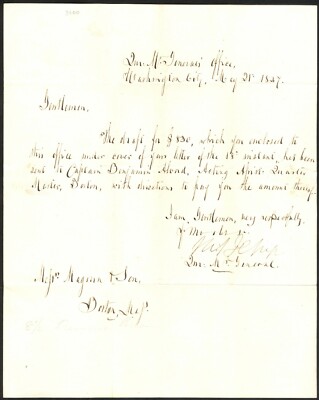 Qur. Mr. Generals' Office,
Washington City, May 21st 1847.
Gentlemen,
The draft for $830, which you enclosed to
this office under cover of your letter of the 18th instant, has been
sent to Captain Benjamin Alvord, Acting Assist. Quarter
Master, Boston, with directions to pay you the amount thereof.
I am, Gentlemen, very respectfully,
Yr. Mo. ob. st.
Th. S. Jesup
Qur. Mr. General
Messrs. Magoun & Son.
Boston, Mass.